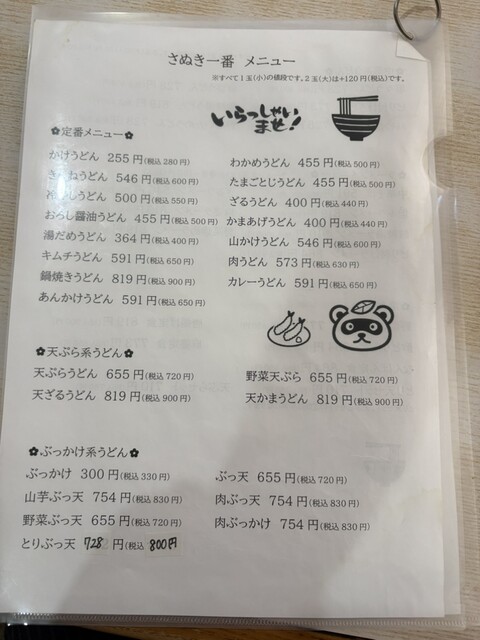 さぬき一番 メニュー
※すべて1玉(小)の値段です。2玉(大)は+120円(税込)です。
いらっしゃい
ませ!
✿定番メニュー✿
かけうどん 255円(税込280円)
きつねうどん 546円(税込600円)
冷やしうどん 500円(税込550円)
おろし醤油うどん 455円(税込500円)
湯だめうどん 364円(税込400円)
キムチうどん 591円(税込650円)
鍋焼きうどん 819円(税込900円)
あんかけうどん 591円(税込650円)
わかめうどん 455円(税込500円)
たまごとじうどん 455円(税込500円)
ざるうどん 400円(税込440円)
かまあげうどん 400円(税込440円)
山かけうどん 546円(税込600円)
肉うどん 573円(税込630円)
カレーうどん 591円(税込650円)
✿天ぷら系うどん✿
天ぷらうどん 655円(税込720円)
天ざるうどん 819円(税込900円)
野菜天ぷら 655円(税込720円)
天かまうどん 819円(税込900円)
✿ぶっかけ系うどん✿
ぶっかけ 300円(税込330円)
山芋ぶっ天 754円(税込830円)
野菜ぶっ天 655円(税込720円)
とりぶっ天 728円(税込800円
ぶっ天 655円(税込720円)
肉ぶっ天 754円(税込830円)
肉ぶっかけ 754円(税込830円)